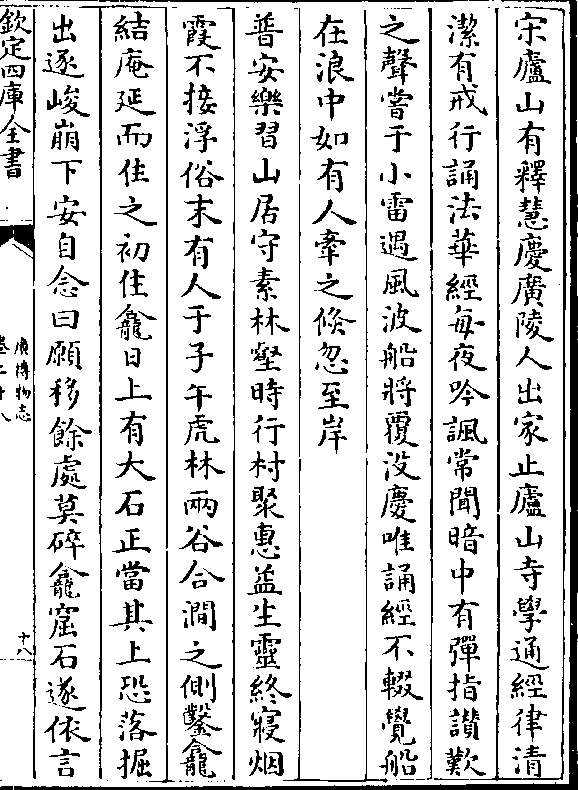 宋廬山有釋慧慶廣陵人出家止廬山寺學通經律清
潔有戒行誦法華經每夜吟諷常聞暗中有彈指讃歎
之聲嘗于小雷遇風波船將覆没慶唯誦經不輟覺船
在浪中如有人牽之倐忽至岸
普安樂習山居守素林壑時行村聚惠益生靈終寢烟
霞不接浮俗末有人于子午虎林兩谷合澗之側鑿龕
結庵延而住之初住龕日上有大石正當其上恐落掘
出逐峻崩下安自念曰願移餘處莫碎龕窟石遂依言
欽定四庫全書
廣博物志
卷二十八
十八